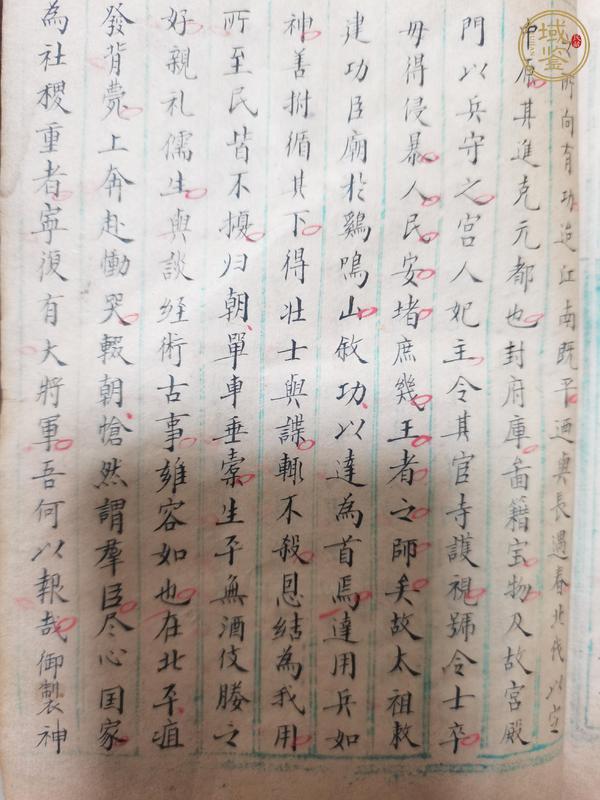 所向有功迨江南既平迺與長遇春北伐以定
中原其進克元都也封府庫啚籍宝物及故宮殿
門以兵守之宮人妃主令其官寺護視號令士卒
毋得侵暴人民安堵庶幾王者之師矣故太祖敕
建功臣廟於鷄鳴山敘功以達為首焉達用兵如
神善拊循其下得壮士與諜輒不殺恩结為我用
所至民皆不擾归朝單車垂橐生平無酒伎媵之
好親礼儒生與談经術古事雍容如也在北平疽
發背薨上奔赴慟哭輟朝愴然謂羣臣尽心国家
為社稷重者寧復有大將軍吾何以報哉御製神
域鉴